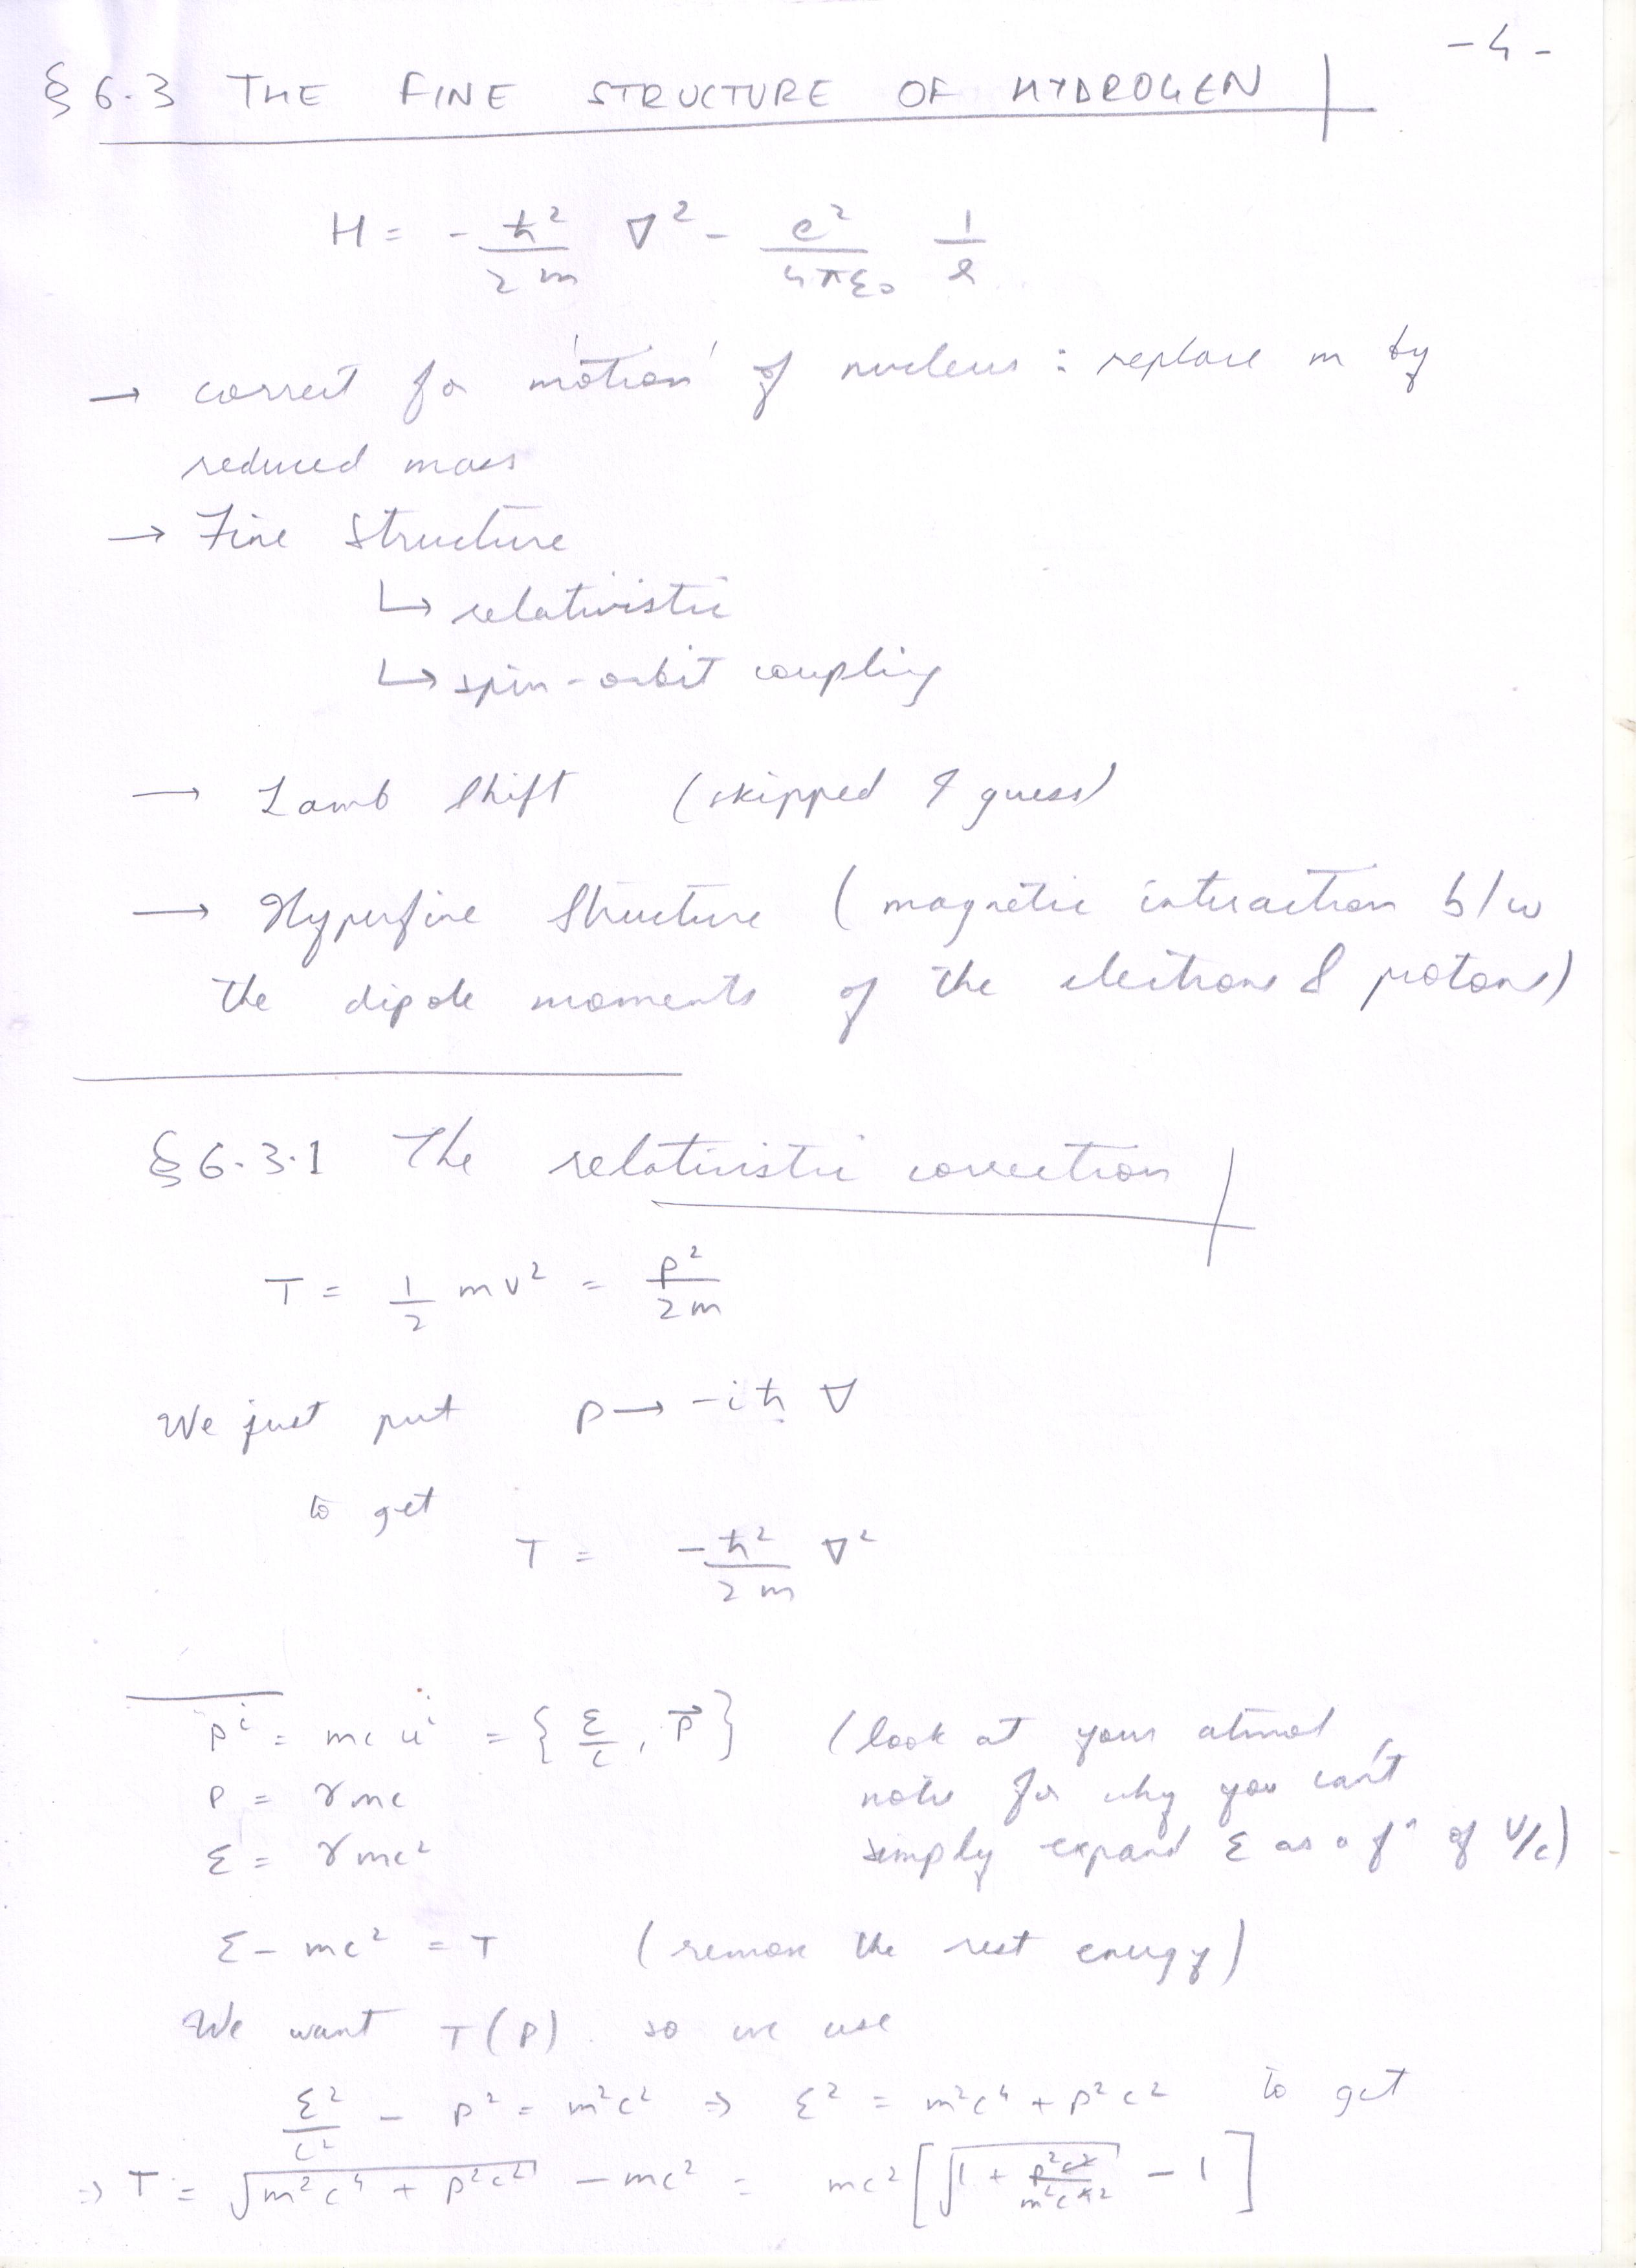 - 4 -
§ 6.3 THE FINE STRUCTURE OF HYDROGEN
H = - ħ²/2m ∇² - e²/4πε₀ 1/r
→ correct for 'motion' of nucleus : replace m by
reduced mass
→ Fine Structure
↳ relativistic
↳ spin-orbit coupling
→ Lamb Shift (skipped I guess)
→ Hyperfine Structure (magnetic interaction b/w
the dipole moments of the electrons & protons)
§ 6.3.1 The relativistic correction
T = 1/2 mv² = p²/2m
We just put p → -iħ ∇
to get
T = -ħ²/2m ∇²
pⁱ = mc uⁱ = {ε/c, p⃗} (look at your
p = γmc note for why you can't
ε = γmc² simply expand ε as a fⁿ of v/c)
ε - mc² = T (remove the rest energy)
We want T(p) so we use
ε²/c² - p² = m²c² ⇒ ε² = m²c⁴ + p²c² to get
⇒ T = √(m²c⁴ + p²c²) - mc² = mc² [√(1 + p²/m²c²) - 1]